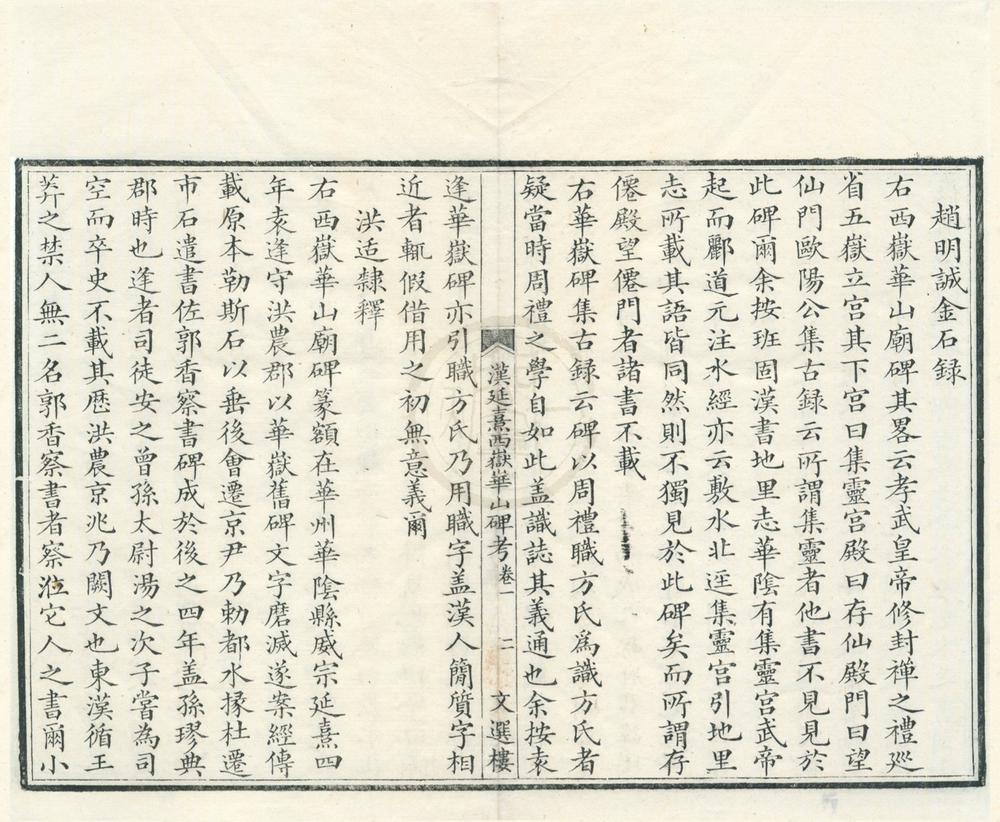 趙明誠金石録
右西嶽華山廟碑其畧云孝武皇帝修封禪之禮巡
省五嶽立宮其下宮曰集靈宮殿曰存仙殿門曰望
仙門歐陽公集古録云所謂集靈者他書不見見於
此碑爾余按班固漢書地里志華陰有集靈宮武帝
起而酈道元注水經亦云敷水北逕集靈宮引地里
志所載其語皆同然則不獨見於此碑矣而所謂存
僊殿望僊門者諸書不載
右華嶽碑集古録云碑以周禮職方氏為識方氏者
疑當時周禮之學自如此盖識誌其義通也余按袁
漢延熹西嶽華山碑考 卷一 二 文選樓
逢華嶽碑亦引職方氏乃用職字盖漢人簡質字相
近者輒假借用之初無意義爾
洪适隸釋
右西嶽華山廟碑篆額在華州華陰縣威宗延熹四
年袁逢守洪農郡以華嶽舊碑文字磨滅遂案經傳
載原本勒斯石以垂後會遷京尹乃勅都水掾杜遷
市石遣書佐郭香察書碑成於後之四年盖孫璆典
郡時也逢者司徒安之曾孫太尉湯之次子嘗為司
空而卒史不載其歷洪農京兆乃闕文也東漢循王
莽之禁人無二名郭香察書者察涖它人之書爾小